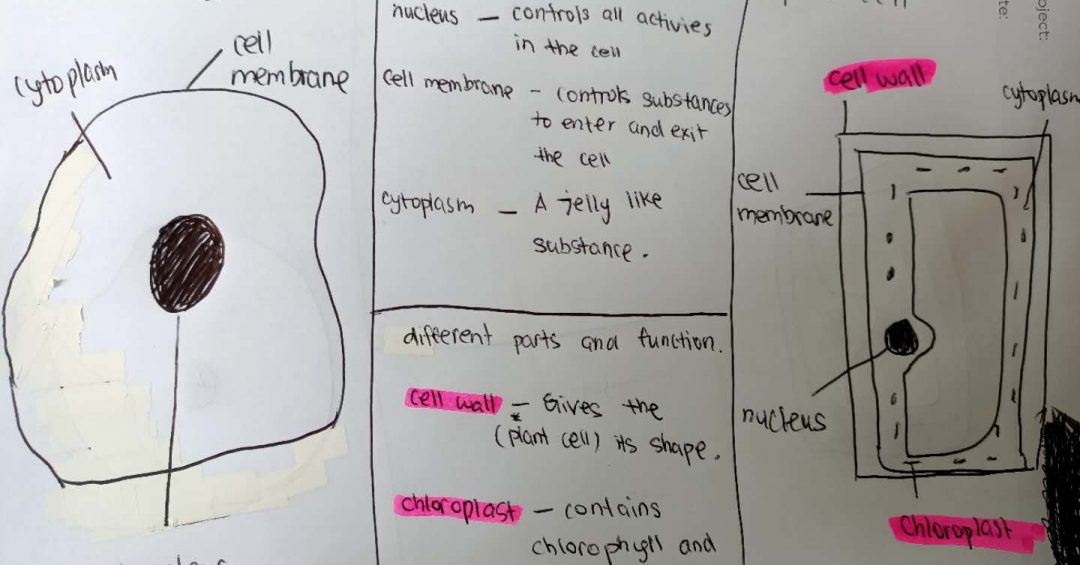 cytoplasm
cell
membrane
nucleus — controls all activies
in the cell
cell membrane - controls substances
to enter and exit
the cell
cytoplasm — A jelly like
substance.
different parts and function.
cell wall — Gives the
(plant cell) its shape.
chloroplast — contains
chlorophyll and
ject:
te:
cell wall
cytoplasm
cell
membrane
nucleus
chloroplast